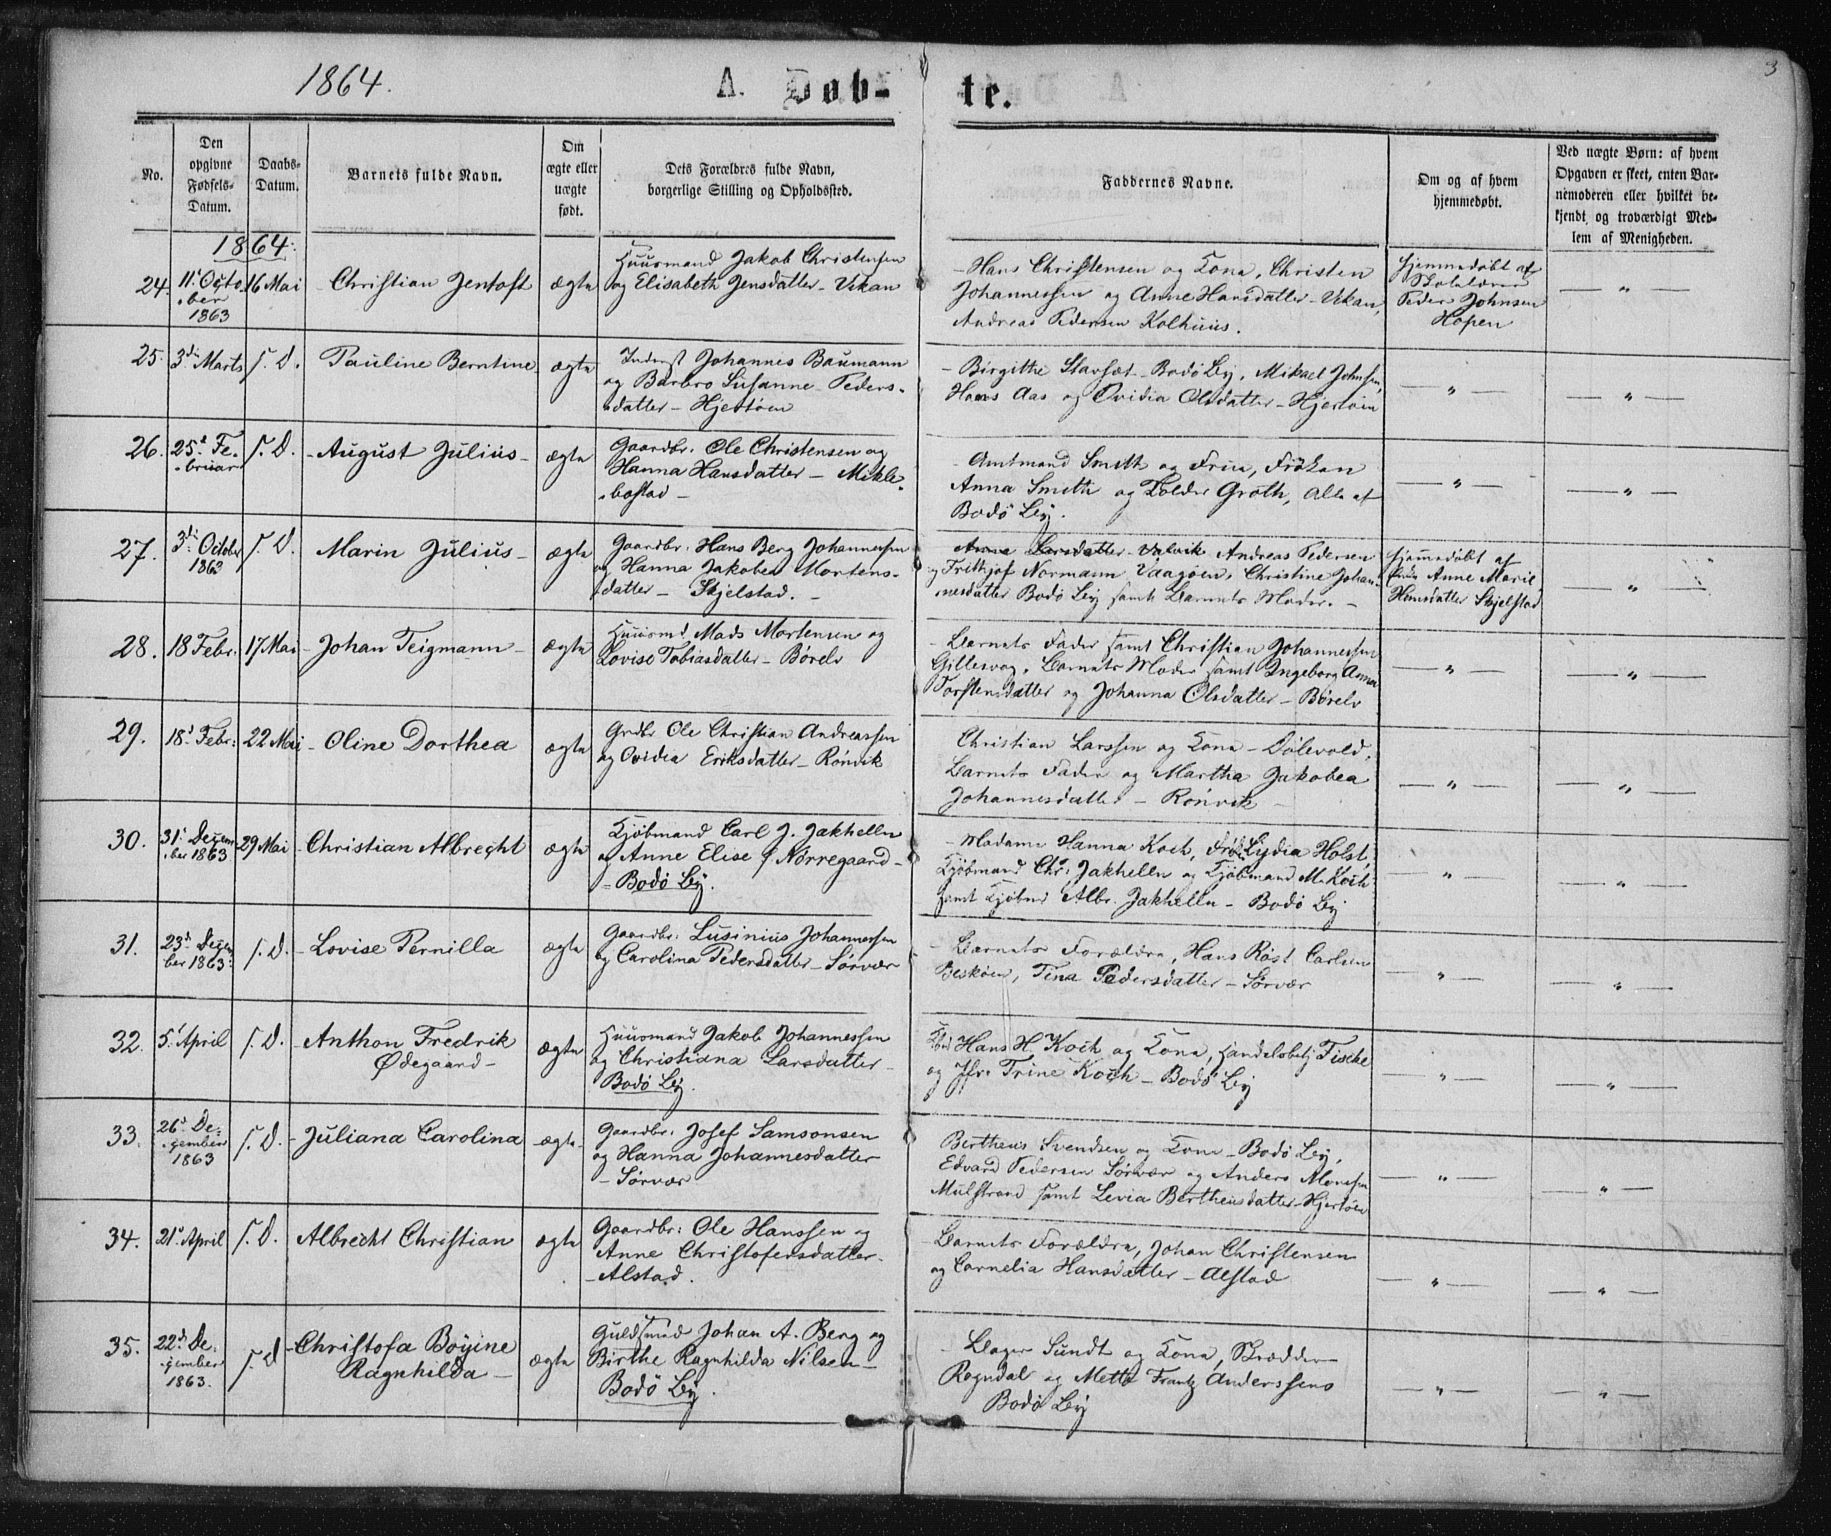 1864.
A. Døbte.
3
No.
Den opgivne Fødsels-Datum.
Daabs-Datum.
Barnets fulde Navn.
Om ægte eller uægte født.
Dets Forældres fulde Navn, borgerlige Stilling og Opholdssted.
Faddernes Navne.
Om og af hvem hjemmedøbt.
Ved uægte Børn: af hvem Opgaven er skeet, enten Barnemoderen eller hvilket bekjendt og troværdigt Medlem af Menigheden.
1864.
24. 11t Octo.ber 1863 16 Mai Christian Jentoft ægte
Huusmand Jakob Christensen
og Elisabeth Jensdatter - Vikan
- Hans Christensen og Kona, Christen
Johannessen og Anne Hansdatter - Vikan,
Andreas Pedersen Kolhuus.
Hjemmedøbt af
Skolelærer
Peder Johnsen
Hopen
— " —
25. 3di Marts s. D. Pauline Berntine ægte
Inderst Johannes Baumann
og Barbro Susanne Peders-
datter - Hjertøen
- Birgithe Stavsæt - Bodø By, Mikael Johnsen,
Hans Aas og Ovidia Olsdatter - Hjertøen
— " —
— " —
26. 25d Fe.bruar s. D. - August Julius - ægte
Gaardbr: Ole Christensen og
Hanna Hansdatter - Mikle-
bostad -
- Amtmand Smith og Frue, Frøken
Anna Smith og Groth, Alle af
Bodø By.
— " —
— " —
27. 3di October 1863 s. D. Marin Julius - ægte
Gaardbr: Hans Berg Johannessen
og Hanna Jakobea Mortens-
datter - Skjelstad. -
Anne Larsdatter - Valvik Andreas Pedersen
og Frithjof Normann Vaagøen, Christine Johan-
nesdatter Bodø By samt Barnets Moder. -
Hjemmedøbt af
Anne Marie
Hansdatter Skjelstad
— " —
28. 18 Febr: 17 Mai - Johan Teigmann - ægte
Huusmd Mads Mortensen og
Lovise Tobiasdatter - Børelv
- Barnets Fader samt Christian Johannessen
Gillesvag, Barnets Moder samt Ingeborg Anna
Torstensdatter og Johanna Olsdatter - Børelv
— " —
— " —
29. 18d Febr: 22 Mai - Oline Dorthea ægte
Grdbr Ole Christian Andreassen
og Ovidia Eriksdatter - Rønvik
Christian Larssen og Kona - Dølevold,
Barnets Fader og Martha Jakobea
Johannesdatter - Rønvik -
— " —
— " —
30. 31t Decem.ber 1863 29 Mai - Christian Albrecht ægte
Kjøbmand Carl J. Jakhelln
og Anne Elise f Nørregaard -
- Bodø By.
- Madame Hanna Koch, Frøk. Lydia Holst,
Kjøbmand Chr: Jakhelln og Kjøbmand M. Koch
samt Kjøbmd Albr. Jakhelln - Bodø By
— " —
— " —
31. 23d Decem ber 1863. s. D. - Lovise Pernilla ægte
Gaardbr: Lusinius Johannessen
og Carolina Pedersdatter - Sørvær
- Barnets Forældre, Hans Røst Carlsen
Beskøen, Tina Pedersdatter - Sørvær
— " —
— " —
32. 5t April s. D. - Anthon Fredrik
Ødegaard - ægte
Huusmand Jakob Johannessen
og Christiana Larsdatter -
Bodø By.
Hans H. Koch og Kona, Handelsbetj Fische
og Jfr. Trine Koch - Bodø By
— " —
— " —
33. 26d De-.cember 1863 s. D. - Juliana Carolina - ægte -
Gaardbr: Josef Samsonsen
og Hanna Johannesdatter
- Sørvær
Bertheus Svendsen og Kone - Bodø By,
Edvard Pedersen Sørvær og Anders Monssen
Mulstrand samt Levia Bertheusdatter - Hjertøen
— " —
— " —
34. 21d April s. D. Albrecht Christian ægte
Gaardbr: Ole Hanssen og
Anne Christofersdatter -
- Alstad.
- Barnets Forældre, Johan Christensen
og Cornelia Hansdatter - Alstad
— " —
— " —
35. 22d De-.cember 1863. s. D - Christofa Boyine
Ragnhilda - ægte
Guldsmed Johan A. Berg og
Birthe Ragnhilda Nilsen -
Bodø By.
- Bager Sundt og Kona, Skrædder
Rogndal og Mette Frantz Anderssens
Bodø By
— " —
— " —